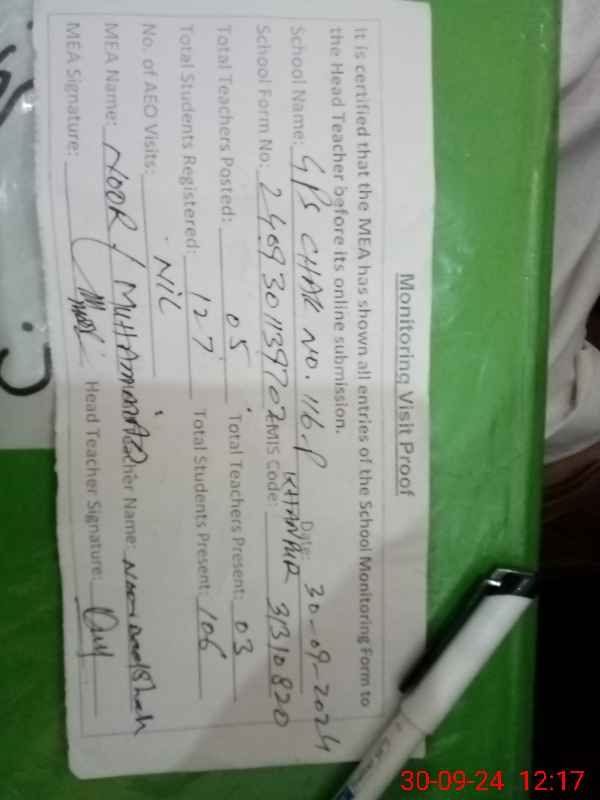 Monitoring Visit Proof
It is certified that the MEA has shown all entries of the School Monitoring Form to
the Head Teacher before its online submission.
School Name: GPS CHAK NO. 116-P KHANPUR Date: 30-09-2024
School Form No: 2409301139702 EMIS Code: 31310820
Total Teachers Posted: 05 Total Teachers Present: 03
Total Students Registered: 127 Total Students Present: 106
No. of AEO Visits: NIL
MEA Name: NOOR MUHAMMAD Teacher Name:
MEA Signature: Head Teacher Signature:
30-09-24 12:17